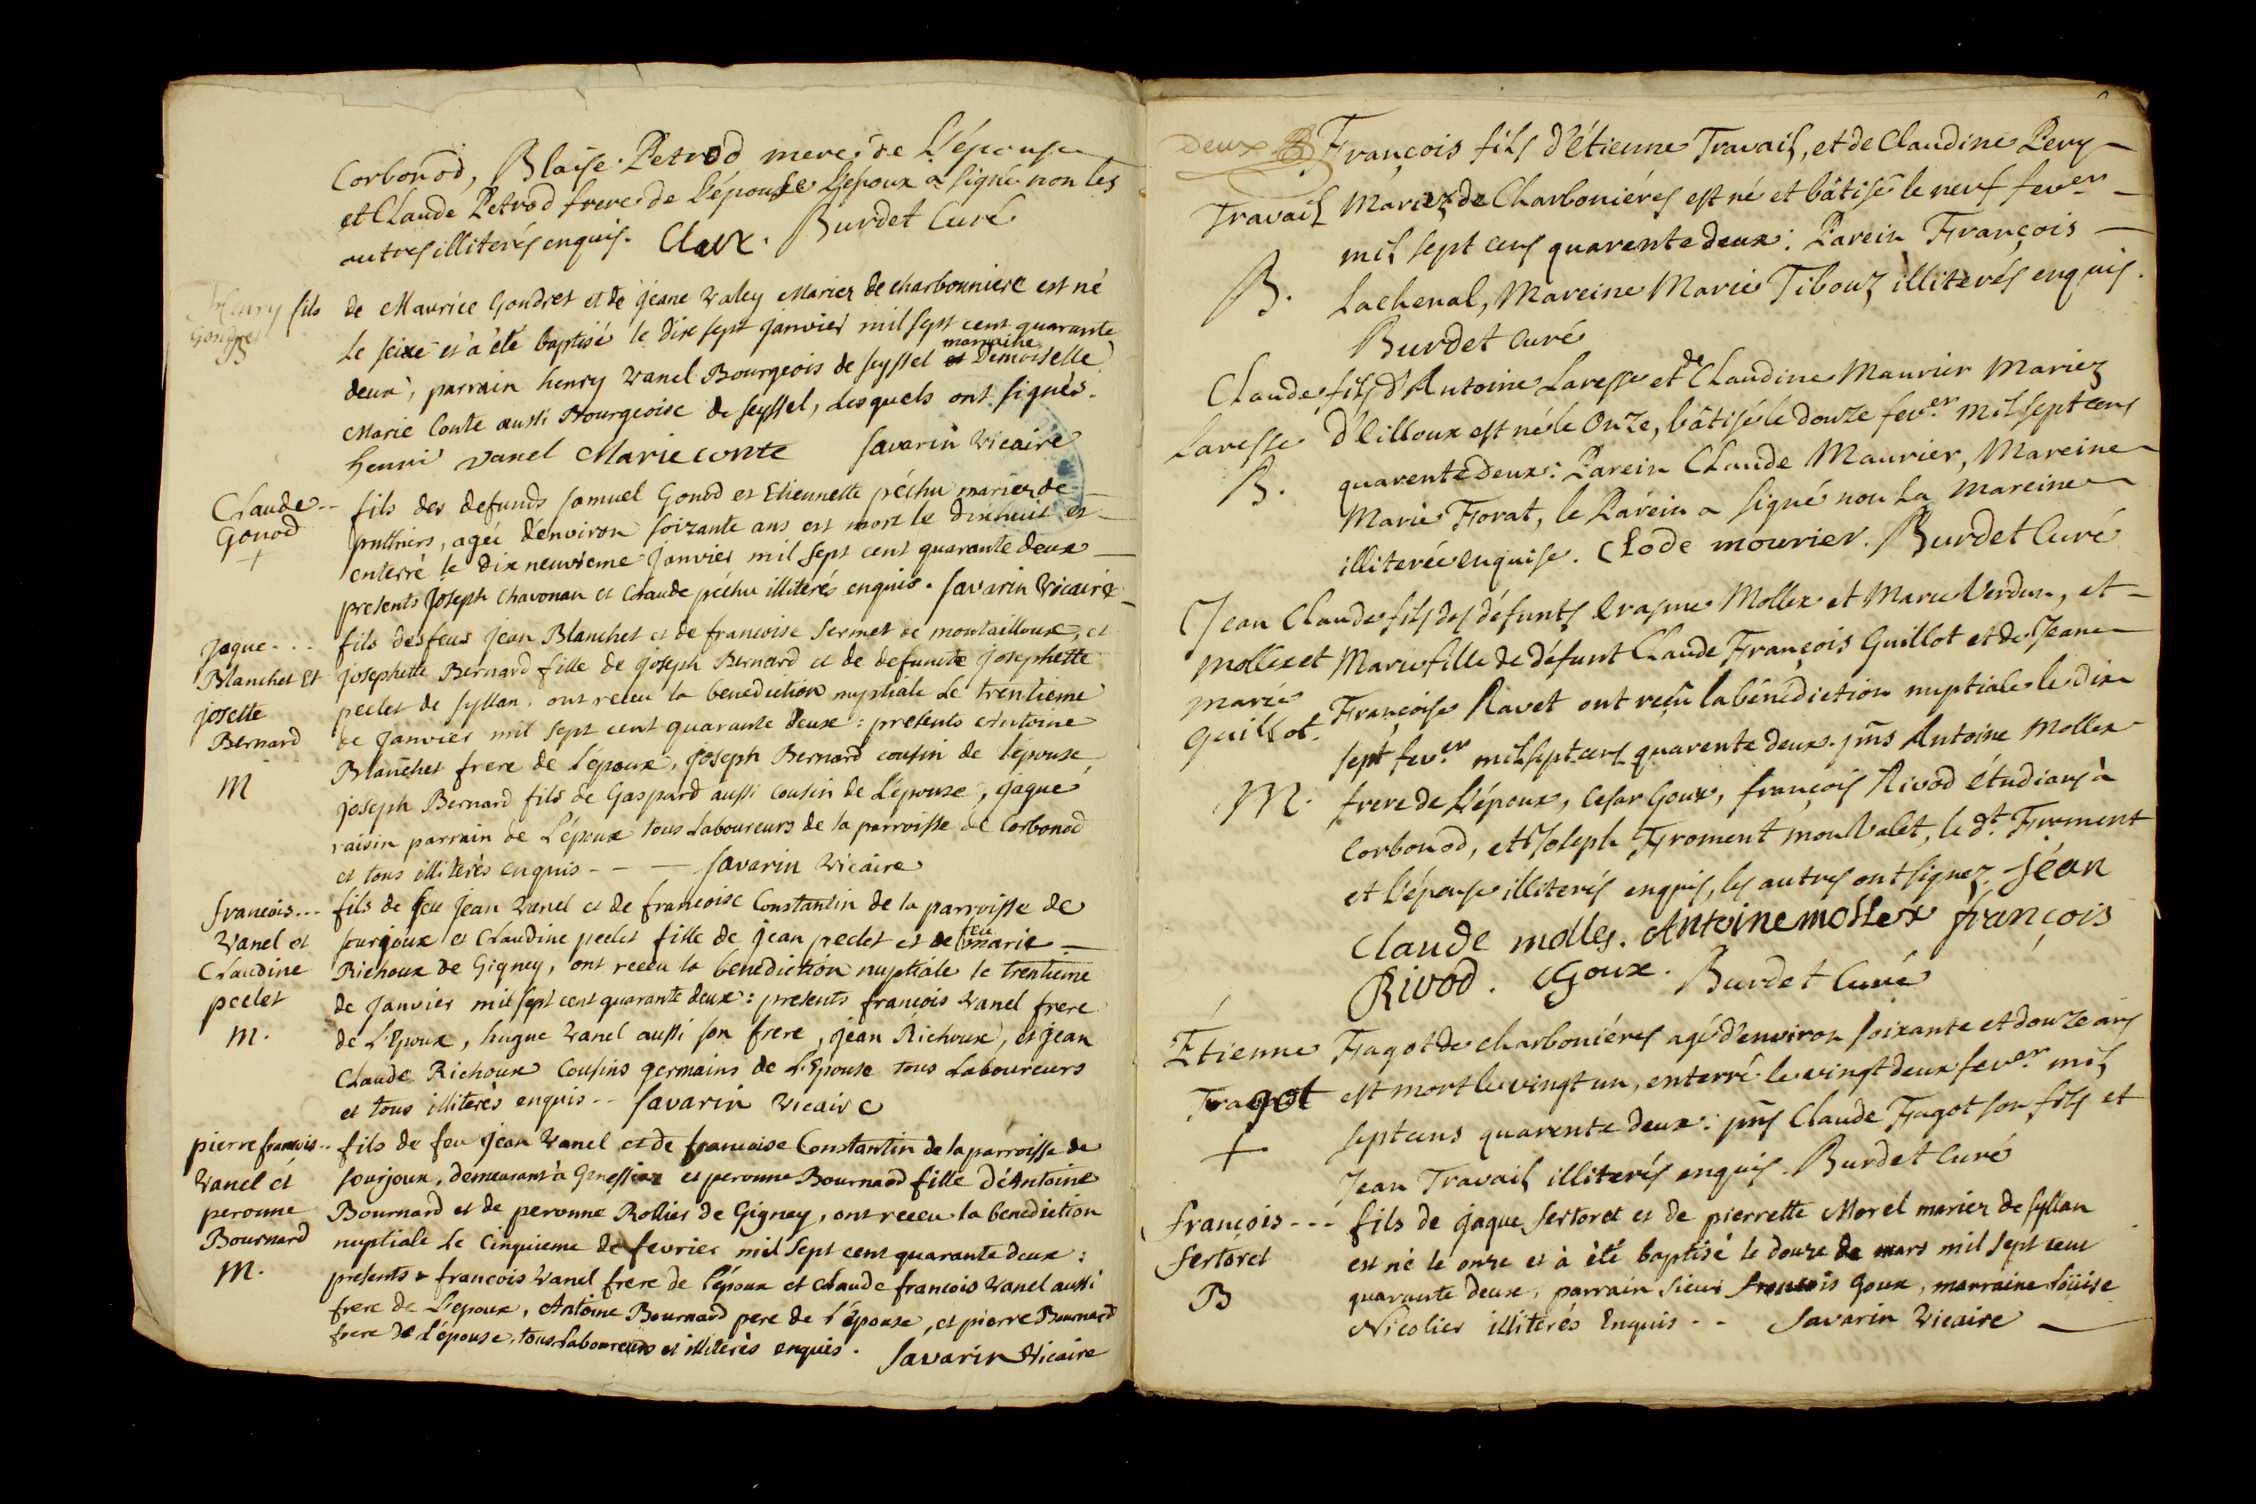 Corbonod, Blaise Petrod mere de L'épouse
et Claude Petrod frere de L'épouse L'époux a signé non les
autres illiterés enquis. Claux. Burdet Curé
Henry fils de Maurice Gondret et de jeane Valey Mariez de charbonniere est né
Gondret le seize et à été baptisé le dix sept janvier mil sept cent quarante
B deux, parrain henry Vanel Bourgeois de seyssel marraine Demoiselle
Marie Conte aussi Bourgeoise de seyssel, Lesquels ont signés.
henri vanel Marie conte savarin Vicaire
Claude -- fils des defunds samuel Gonod et Etiennette péchu mariez de
Gonod agée d'environ soizante ans est mort le dixhuit et
+ enterré le dix neuvieme janvier mil sept cent quarante deux
presents joseph Chavonan et Claude péchu illiterés enquis. savarin Vicaire
jaque - - . fils des feus jean Blanchet et de francoise sermet de montailloux, et
Blanchet Et josephette Bernard fille de joseph Bernard et de defuncte josephette
josette peclet de syllan, ont receu la benediction nuptiale Le trentieme
Bernard de janvier mil sept cent quarante deux : presents Antoine
M Blanchet frere de L'époux, joseph Bernard cousin de l'épouse,
joseph Bernard fils de Gaspard aussi cousin de L'épouse, jaque
raisin parrain de L'époux tous Laboureurs de la parroisse de Corbonod
et tous illiterès enquis - - — savarin Vicaire
francois --- fils de feu jean Vanel et de francoise Constantin de la parroisse de
Vanel et sourjoux et Claudine peclet fille de jean peclet et de feu marie —
Claudine Richoux de Gigney, ont receu la benediction nuptiale le trentieme
peclet de janvier mil sept cent quarante deux : presents francois Vanel frere
M. de L'Epoux, hugue Vanel aussi son frere, jean Richoux, et jean
Claude Richoux Cousins germains de L'Epouse tous Laboureurs
et tous illiterès enquis -- savarin Vicaire
pierre francois -- fils de feu jean Vanel et de francoise Constantin de la parroisse de
Vanel et sourjoux, demeurant à Genessiaz et peronne Bournard fille d'Antoine
peronne Bournard et de peronne Rollier de Gigney, ont receu la benediction
Bournard nuptiale Le cinquieme de fevrier mil sept cent quarante deux :
M. presents francois Vanel frere de l'époux et claude francois Vanel aussi
frere de L'epoux, Antoine Bournard pere de l'épouse, et pierre Bournard
frere de L'épouse, tous Laboureurs et illiterès enquis. savarin Vicaire
Deux François fils d'étienne Travail, et de Claudine Pery
Travail Mariez de Charboniéres est né et bâtisé le neuf fever
mil sept cens quarente deux : Parein François —
B. Lachenal, Mareine Marie Tibouz illiterés enquis.
Burdet Curé
Claude fils d'Antoine Laresse et de Claudine Maurier Mariez
Laresse d'Eilloux est né le Onze, bâtisé le douze fever mil sept cens
B. quarente deux : Parein Claude Maurier, Mareine
Marie Forat, le Parein a signé non La Mareine
illiterée enquise. Clode mourier. Burdet Curé
Jean Claude fils des défunts Erasme Mollex et Marie Verdun, et
mollex et Marie fille de défunt Claude François Guillot et de Jeane
marie Françoise Ravet ont reçu la bénédiction nuptiale le dix
Guillot. sept fever mil sept cens quarente deux. pns Antoine Mollex
M. frere de L'époux, Cesar Goux, françois Rivod étudians à
Corbonod, et Joseph Froment mon Valet, le dt. Froment
et L'épouse illiterés enquis, les autres ont signez. jean
Claude molles. Antoine mollex françois
Rivod. Goux. Burdet Curé
Étienne Fagot de Charboniéres agé d'environ soixante et douze ans
Fragot est mort le vingt un, enterré le vingt deux fever mil
+ sept cens quarente deux : pns Claude Fagot son fils et
Jean Travail illiterés enquis. Burdet Curé
françois --- fils de jaque sertoret et de pierrette Morel mariez de syllan
sertoret est né le onze et à été baptisé le douze de mars mil sept cent
B quarante deux, parrain sieur francois Goux, marraine Loüise
Nicolier illiterés Enquis -- Savarin Vicaire —